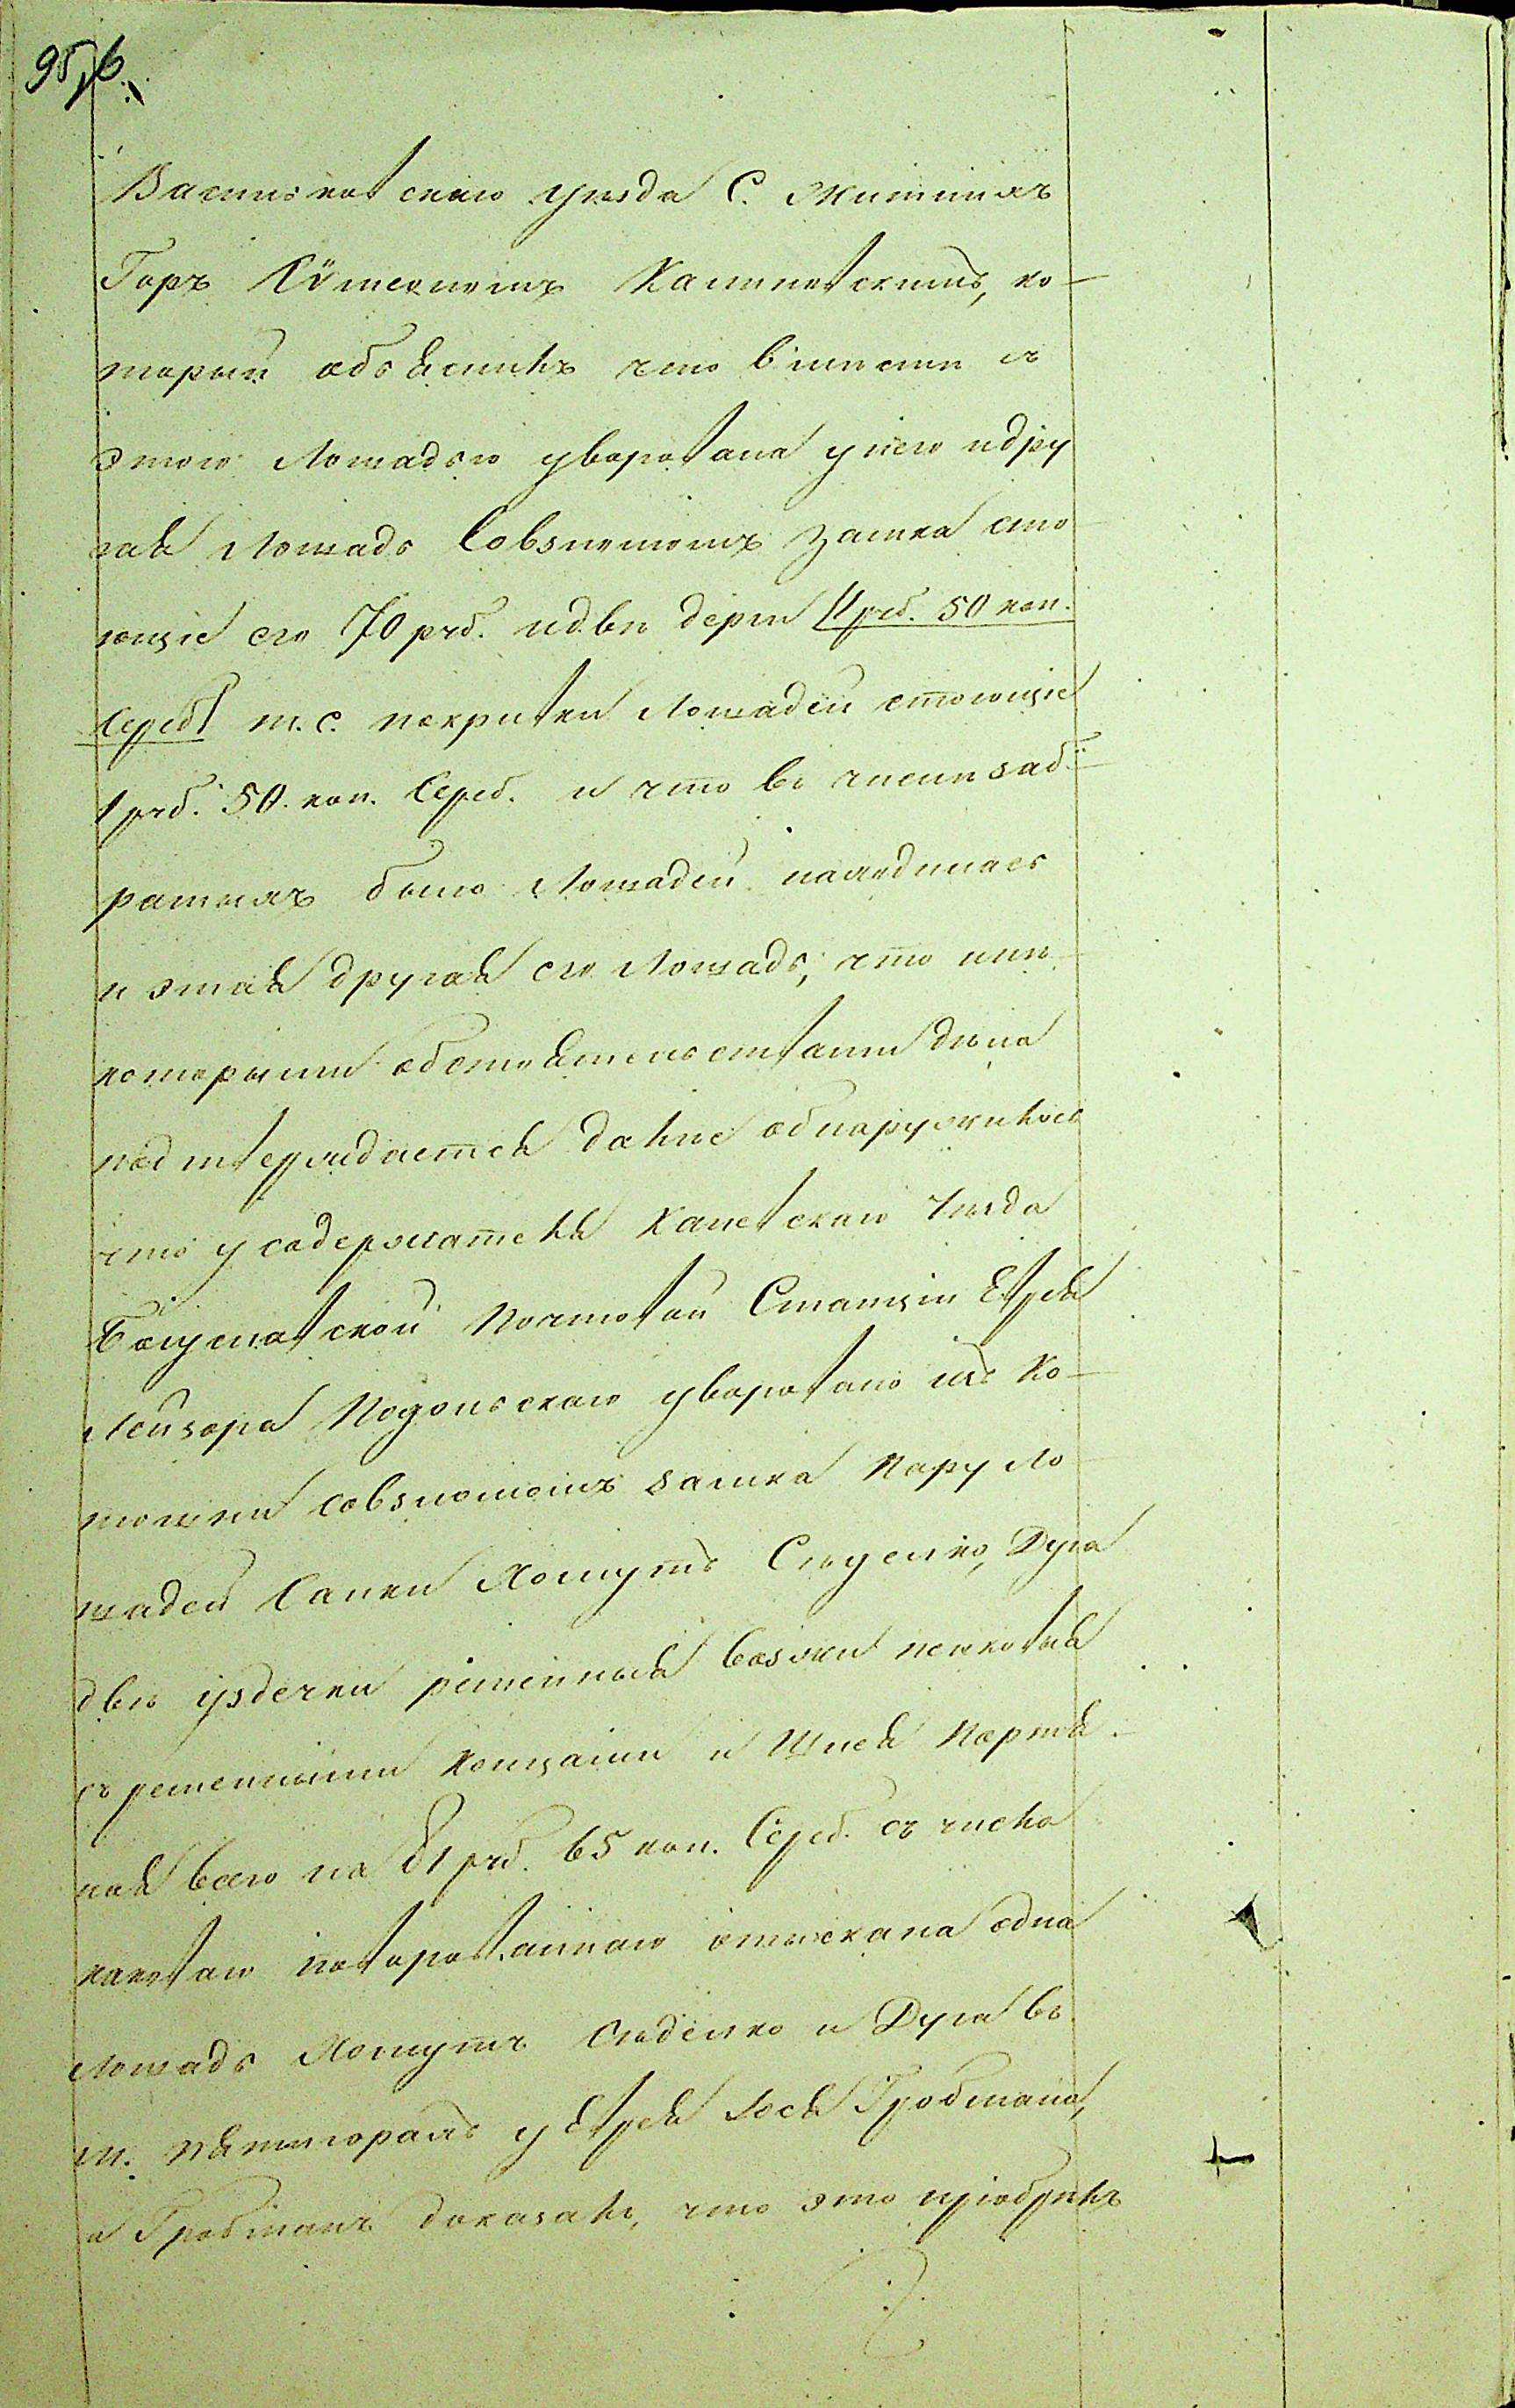 95,6.
Васильковскаго уѣзда С. Житнихъ
Горъ Клименомъ Калиневскимъ, ко-
торый объяснилъ что вмѣсти съ
этою лошадью уворована у него и дру
гая лошадь Совзломомъ замка сто
ющіе его 70 руб. и двѣ дерги 4 руб. 50 коп.
Сереб. т. е. покрывки лошадей стоющіе
1 руб. 50. коп. Сереб. и что въ числѣ заб-
ратыхъ было лошадей находилась
и этая другая его лошадь, что нѣ-
которыми обстоятельствами дѣла
подтверждается далѣе обнаружилось
что у содержателя Каневскаго Уѣзда
Богуславской Почтовой Станціи Еврея
Лейзора Подольскаго уворовано изъ Ко-
тошни совзломомъ замка Пару Ло-
шадей Санки Хомутъ Сидѣлко, Дуга
двѣ уздечки ременныя возжи пеньковыя
съ ременными концами и Шлея Портя-
ная всего на 81 руб. 65 коп. Сереб. съ числа
каковаго поворованнаго отыскана одна
лошадь Хомутъ Сидѣлко и Дуга въ
м. Пятигорахъ у Еврея Іося Гробмана,
а Гробманъ доказалъ, что это пріобрѣлъ